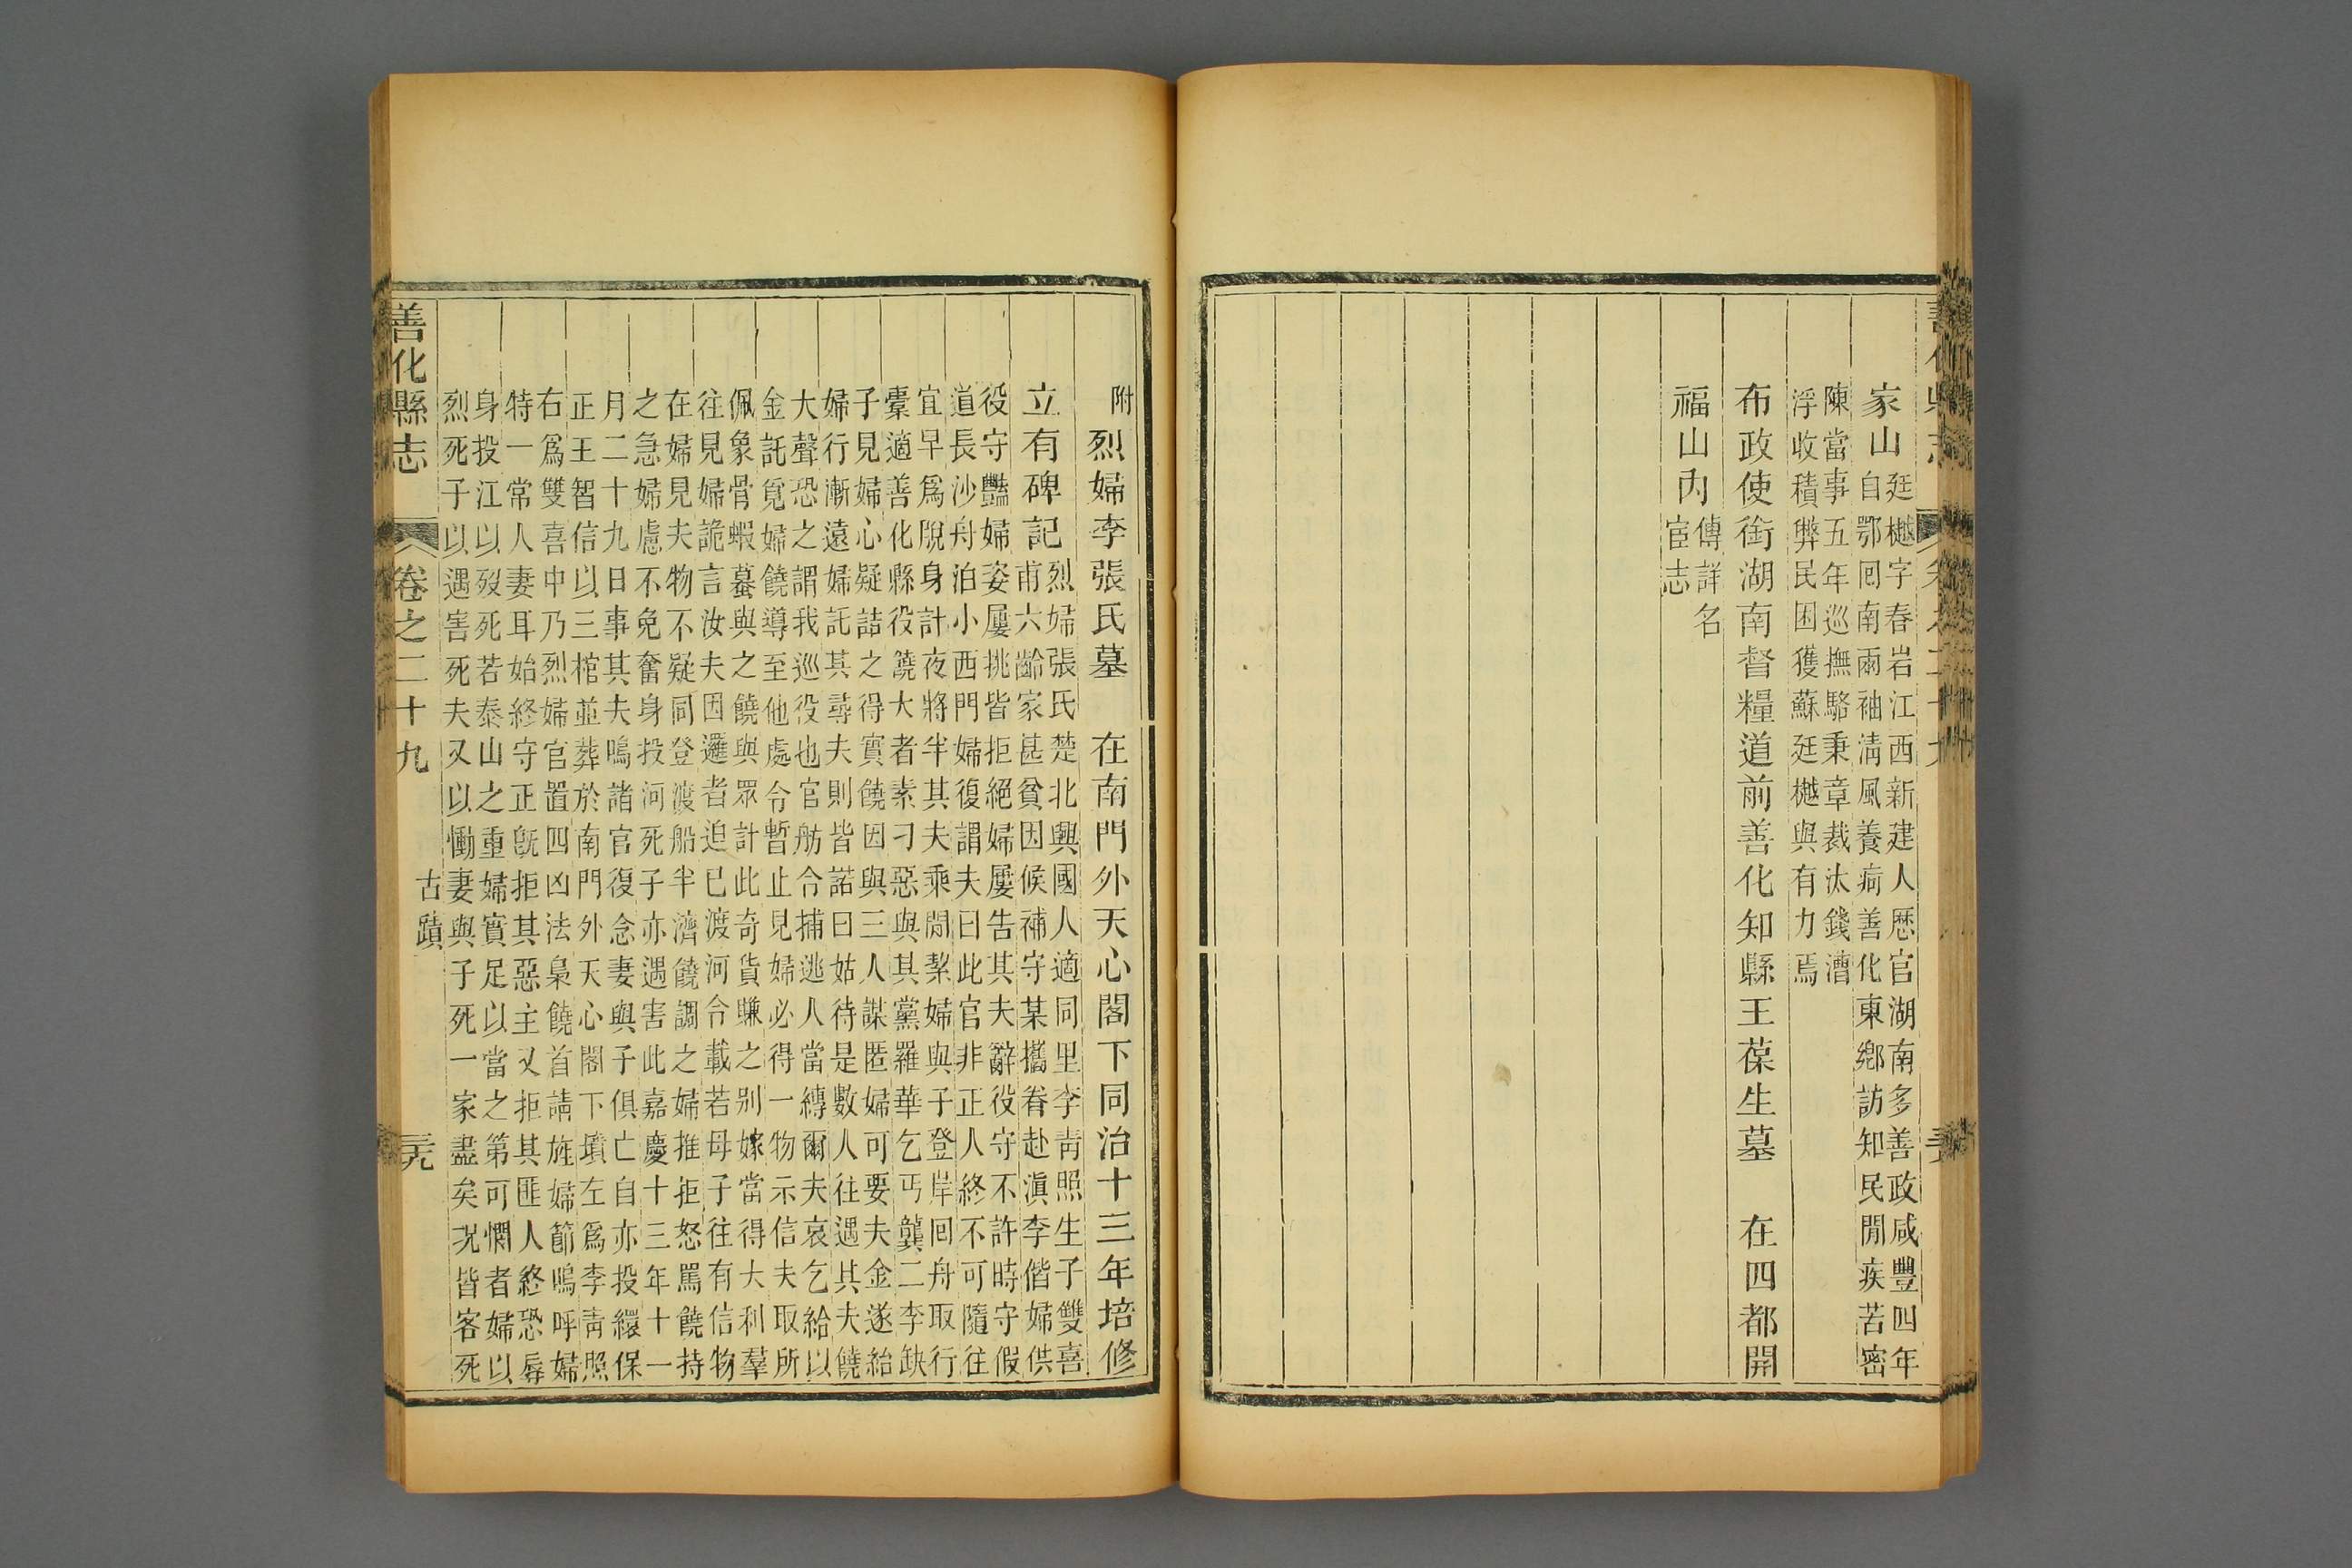 家山廷樾字春岩江西新建人歷官湖南多善政咸豐四年
自鄂囘南兩袖淸風養疴善化東鄉訪知民閒疾苦密
陳當事五年巡撫駱秉章裁汰錢漕
浮收積弊民困獲蘇廷樾與有力焉
布政使銜湖南督糧道前善化知縣王葆生墓 在四都開
福山內傳詳名
宦志
附 烈婦李張氏墓 在南門外天心閣下同治十三年培修
立有碑記烈婦張氏楚北興國人適同里李靑照生子雙喜
甫六齡家甚貧因候補守某攜眷赴滇李偕婦供
役守豔婦姿屢挑皆拒絕婦屢告其夫辭役守不許時守假
道長沙舟泊小西門婦復謂夫曰此官非正人終不可隨往
宜早爲脫身計夜將半其夫乘閒挈婦與子登岸囘舟取行
橐適善化縣役饒大者素刁惡與其黨羅華乞丐龔二李缺
子見婦心疑詰之得實饒因與三人謀匿婦可要夫金遂紿
婦行漸遠婦託其尋夫則皆諾曰姑待是數人往遇其夫饒
大聲恐之謂我巡役也官舫令捕逃人當縛爾夫哀乞給以
金託覓婦饒導至他處令暫止見婦必得一物示信夫取所
佩象骨蝦蟇與之饒與眾計此奇貨賺之别嫁當得大利羣
往見婦詭言汝夫因邏者迫已渡河令載若母子往有信物
在婦見夫物不疑同登渡船半濟饒調之婦推拒怒罵饒持
之急婦慮不免奮身投河死子亦遇害此嘉慶十三年十一
月二十九日事其夫鳴諸官復念妻與子俱亡自亦投繯保
正王智信以三棺並葬於南門外天心閣下墳左爲李靑照
右爲雙喜中乃烈婦官置四凶法梟饒首請旌婦節嗚呼婦
特一常人妻耳始終守正旣拒其惡主又拒其匪人終恐辱
身投江以歿死若泰山之重婦實足以當之第可憫者婦以
烈死子以遇害死夫又以慟妻與子死一家盡矣况皆客死
善化縣志 卷之二十九 古蹟